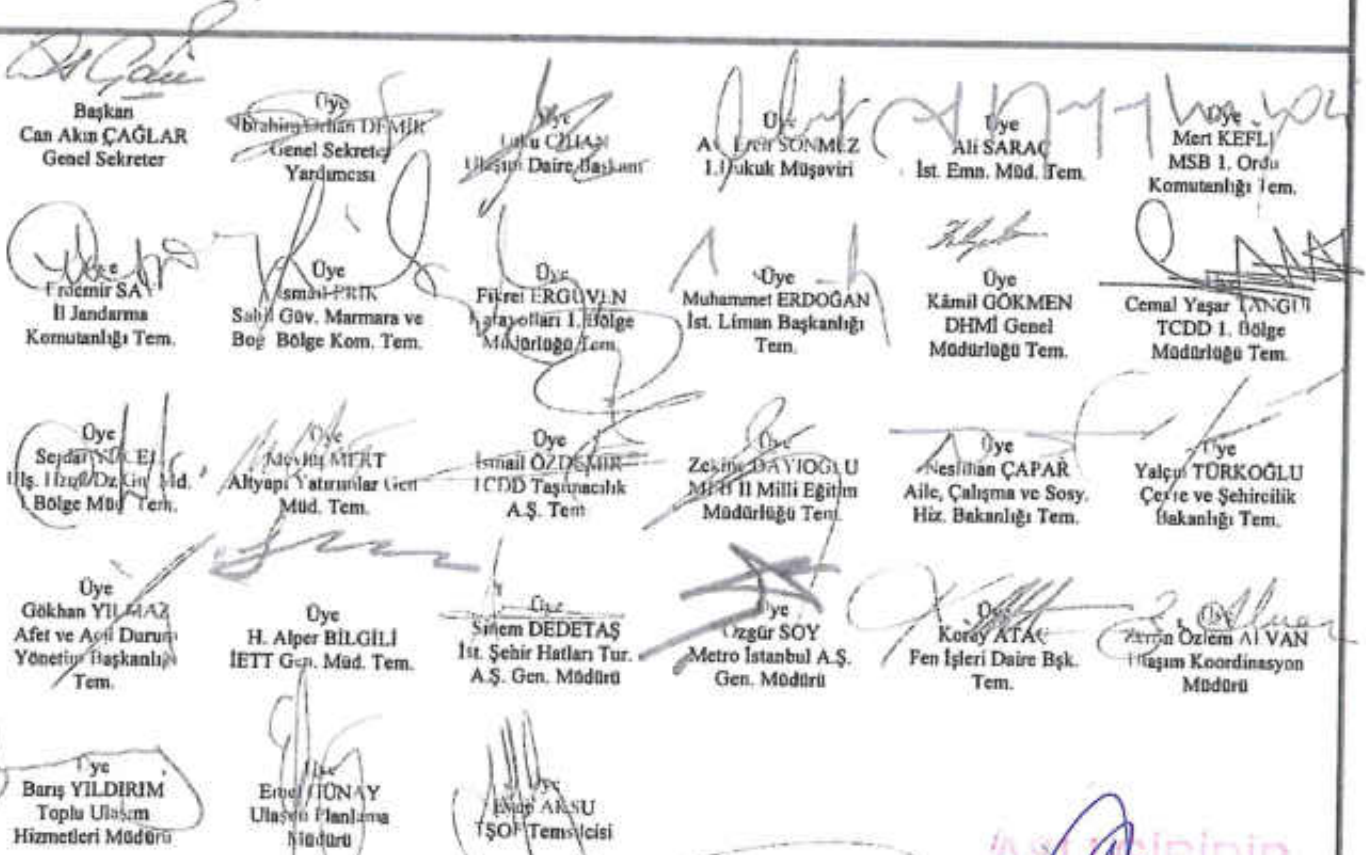 Başkan
Can Akın ÇAĞLAR
Genel Sekreter
Üye
İbrahim Orhan DEMİR
Genel Sekreter
Yardımcısı
Üye
Utku CİHAN
Ulaşım Daire Başkanı
Üye
Av. Eren SÖNMEZ
1.Hukuk Müşaviri
Üye
Ali SARAÇ
İst. Emn. Müd. Tem.
Üye
Mert KEFLİ
MSB 1. Ordu
Komutanlığı Tem.
Üye
Erdemir
İl Jandarma
Komutanlığı Tem.
Üye
İsmail
Sahil Güv. Marmara ve
Boğ. Bölge Kom. Tem.
Üye
Fikret ERGÜVEN
Karayolları 1. Bölge
Müdürlüğü Tem.
Üye
Muhammet ERDOĞAN
İst. Liman Başkanlığı
Tem.
Üye
Kâmil GÖKMEN
DHMİ Genel
Müdürlüğü Tem.
Cemal Yaşar TANGÜL
TCDD 1. Bölge
Müdürlüğü Tem.
Üye
Serdar YÜCEL
Bölge Müd. Tem.
Üye
Mevlüt MERT
Altyapı Yatırımlar Gen
Müd. Tem.
Üye
İsmail ÖZDEMİR
TCDD Taşımacılık
A.Ş. Tem
Üye
Zekine DAYIOĞLU
MEB İl Milli Eğitim
Müdürlüğü Tem.
Üye
Neslihan ÇAPAR
Aile, Çalışma ve Sosy.
Hiz. Bakanlığı Tem.
Üye
Yalçın TÜRKOĞLU
Çevre ve Şehircilik
Bakanlığı Tem.
Üye
Gökhan YILMAZ
Afet ve Acil Durum
Yönetim Başkanlığı
Tem.
Üye
H. Alper BİLGİLİ
İETT Gen. Müd. Tem.
Üye
Sinem DEDETAŞ
İst. Şehir Hatları Tur.
A.Ş. Gen. Müdürü
Üye
Özgür SOY
Metro İstanbul A.Ş.
Gen. Müdürü
Üye
Koray ATAÇ
Fen İşleri Daire Bşk.
Tem.
Üye
Özlem ALVAN
Ulaşım Koordinasyon
Müdürü
Üye
Barış YILDIRIM
Toplu Ulaşım
Hizmetleri Müdürü
Üye
Emel GÜNAY
Ulaşım Planlama
Müdürü
Üye
AKSU
TŞOF Temsilcisi